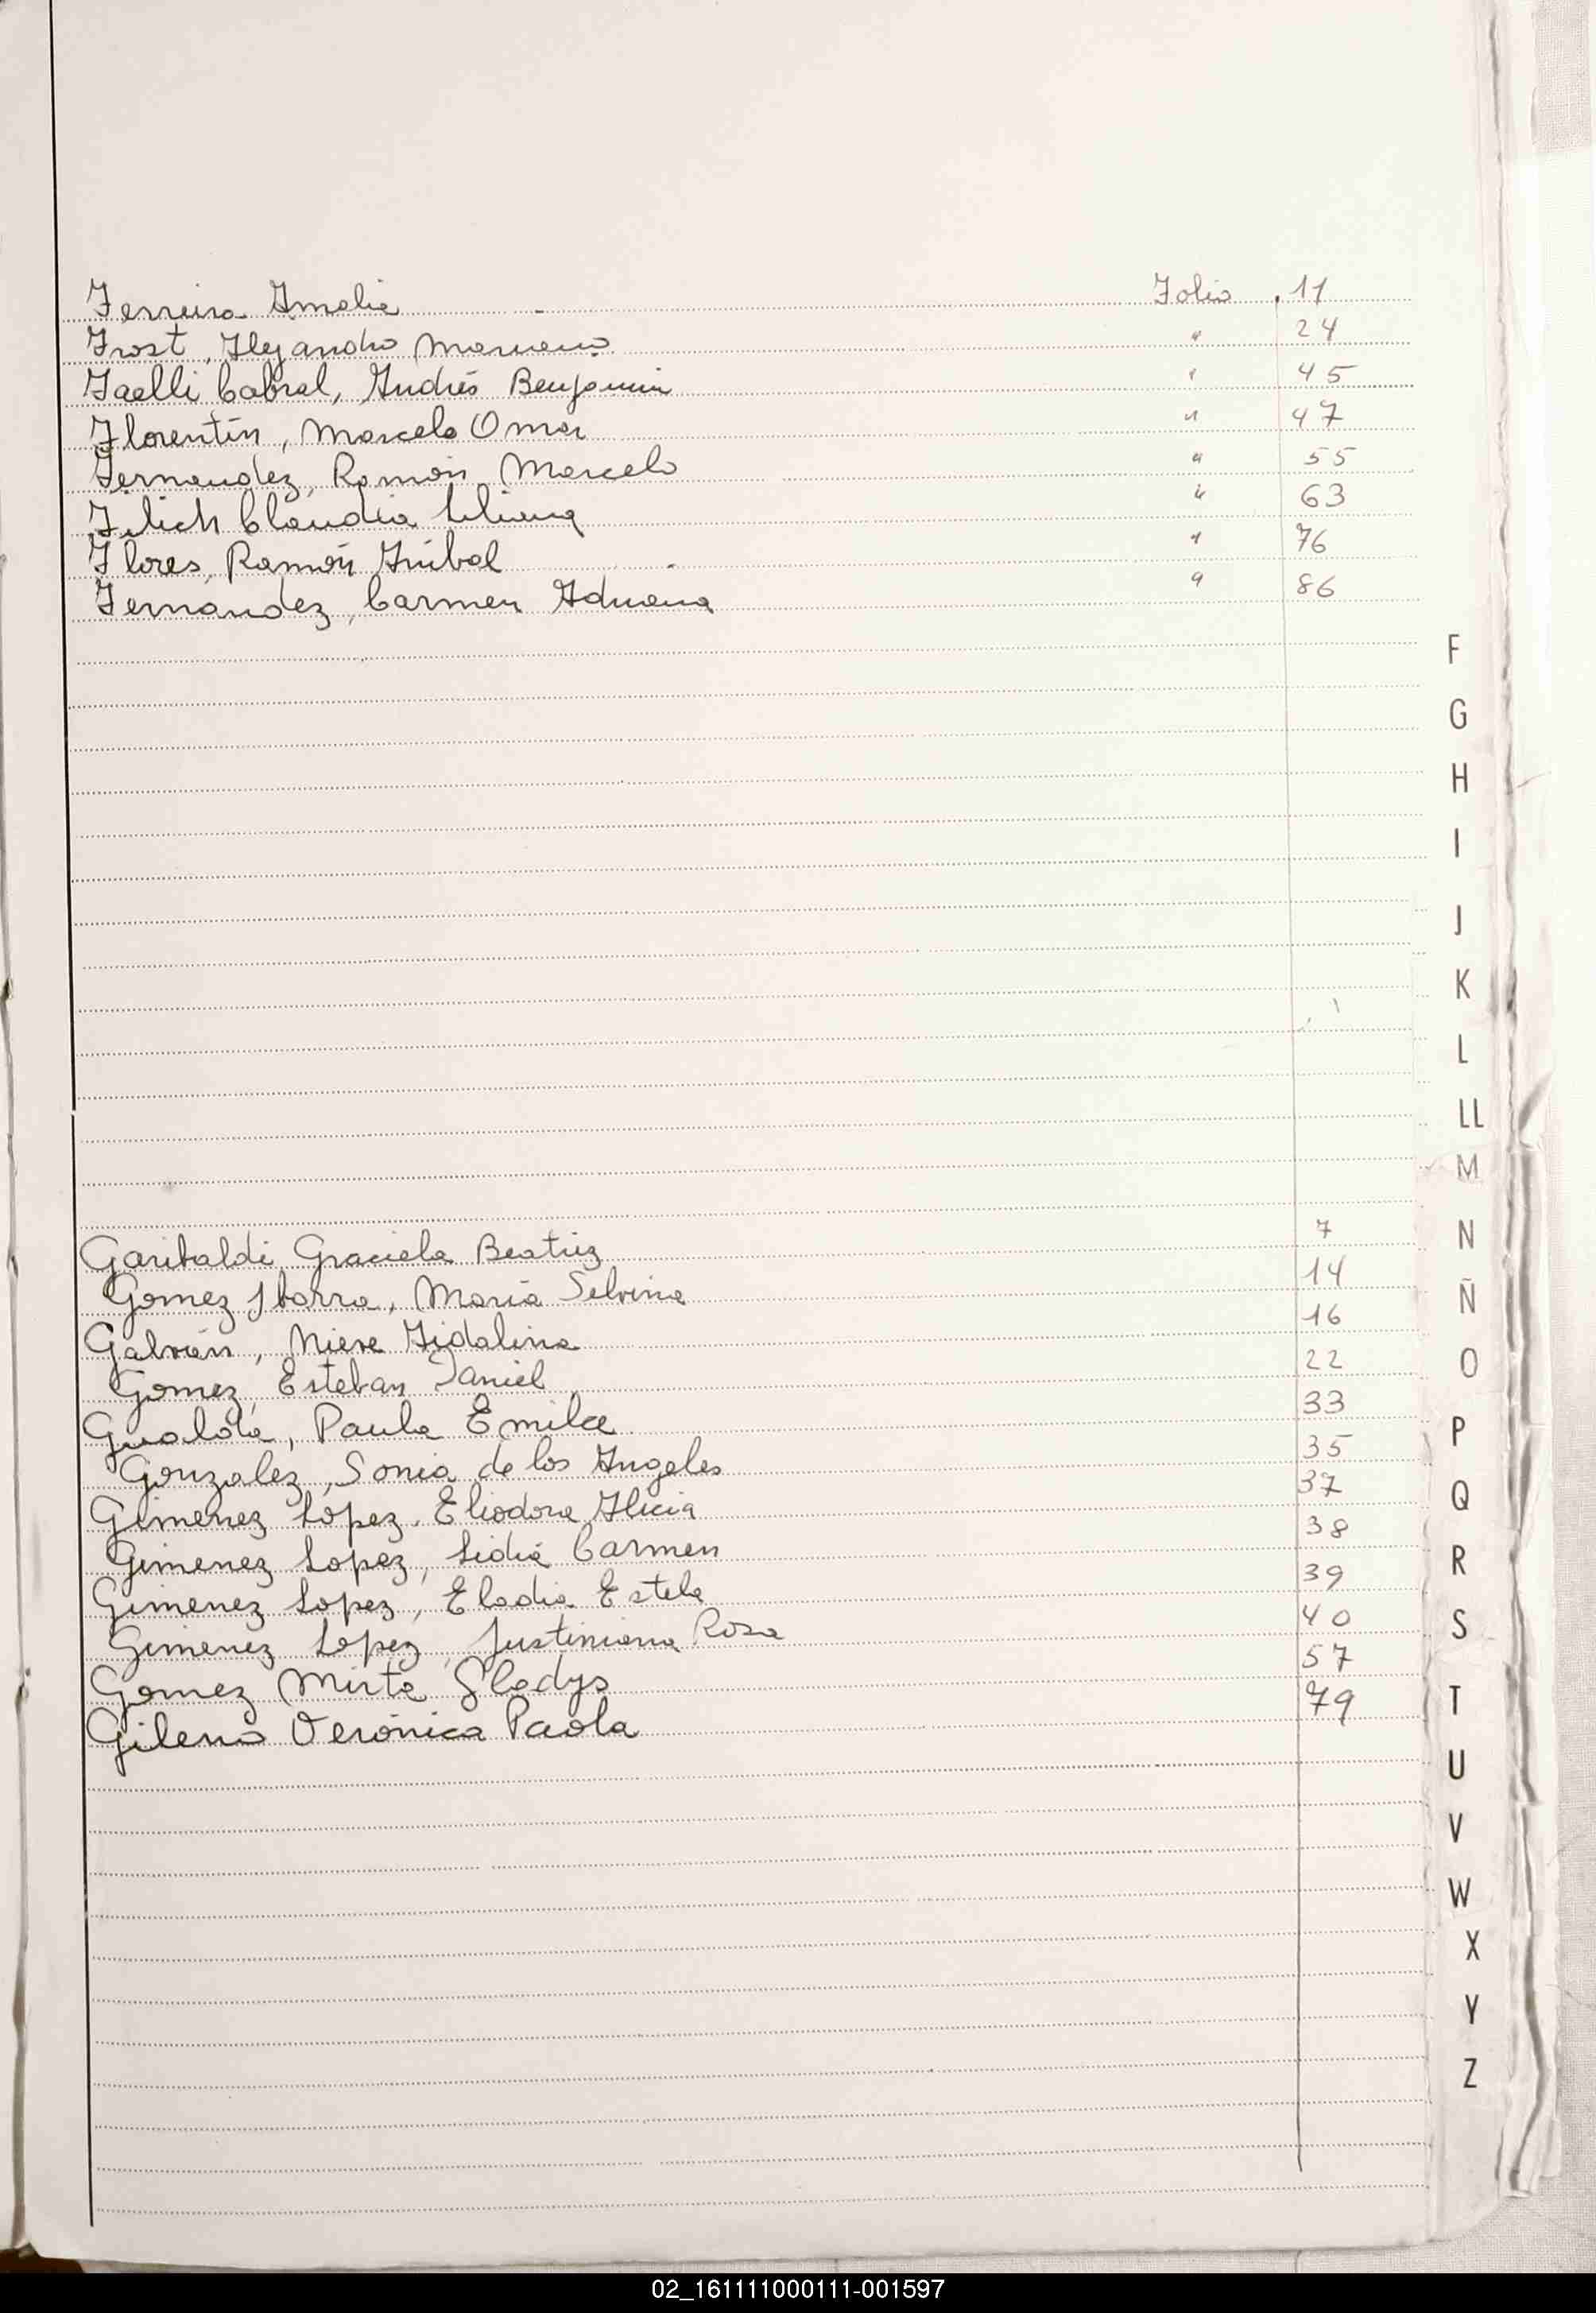 Ferreira Amelia Folio 11
Frost, Alejandro Mariano " 24
Faelli Cabral, Andrés Benjamin " 45
Florentín, Marcelo Omar " 47
Fernandez, Ramón Marcelo " 55
Filich Claudia Liliana " 63
Flores, Ramón Anibal " 76
Fernandez, Carmen Adriana " 86
F
G
H
I
J
K
L
LL
M
Garibaldi Graciela Beatriz 7
N
Gomez Ibarra, Maria Selvina 14
Ñ
Galván, Nieve Fidalina 16
Gomez, Esteban Daniel 22
O
Paula Emilce 33
P
Gonzalez, Sonia de los Angeles 35
Gimenez López, Eliodora Alicia 37
Q
Gimenez Lopez, Lidia Carmen 38
R
Gimenez Lopez, Eladia Estela 39
Gimenez Lopez, Justiniana Rosa 40
S
Gomez Mirta Gladys 57
Veronica Paola 79
T
U
V
W
X
Y
Z
02_161111000111-001597